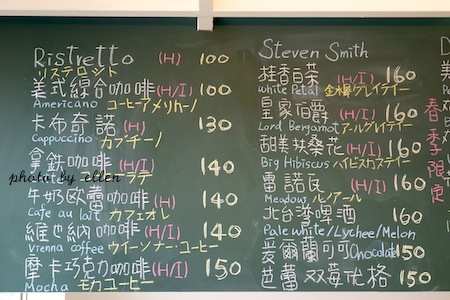 Ristretto (H) 100
リステロシト
美式綜合咖啡(H/I) 100
Americano コーヒーアメリカーノ
卡布奇諾(H) 130
Cappuccino カプチーノ
拿鉄咖啡(H/I) 140
photo by ellen ラテ
牛奶歐蕾咖啡(H/I) 140
Cafe au lait カフェオレ
維也納咖啡(H/I) 140
Vienna coffee ウイーンナー・コーヒー
摩卡巧克力咖啡(H/I) 150
Mocha モカコーヒー
Steven Smith
桂香白茶 (H/I) 160
White Petal
皇家伯爵 (H/I) 160
Lord Bergamot アールグレイティー
甜美扶桑花(H/I) 160
Big Hibiscus ハイビスカスティー
雷諾瓦 (H/I) 160
Meadow ルノアール
北台灣啤酒 160
Pale white/Lychee/Melon
愛爾蘭可可 Chocolate 150
芭蕾双莓优格 150
春季限定